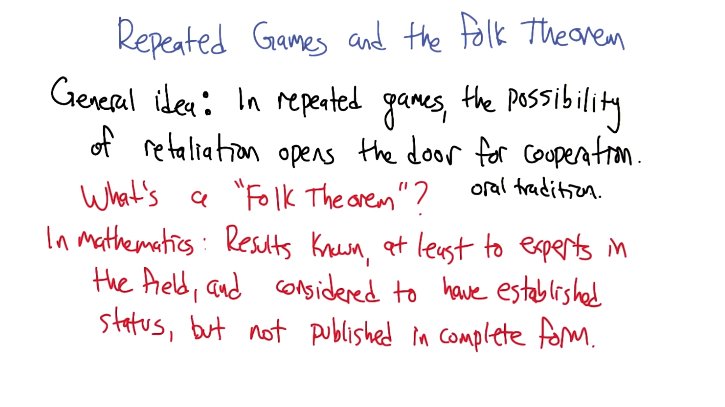 Repeated Games and the Folk Theorem
General idea: In repeated games, the possibility
of retaliation opens the door for cooperation.
What's a "Folk Theorem"? oral tradition.
In mathematics: Results known, at least to experts in
the field, and considered to have established
status, but not published in complete form.